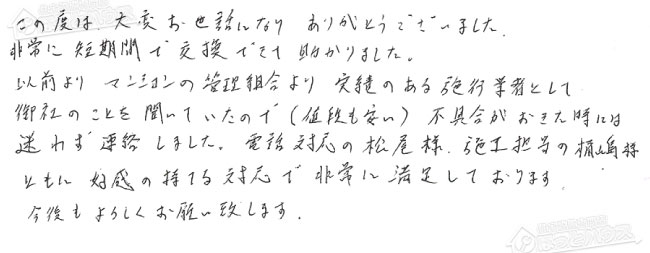 この度は、大変お世話になり ありがとうございました。
非常に短期間で交換できて助かりました。
以前より マンションの管理組合より 実績のある施行業者として
御社のことを聞いていたので（値段も安い）不具合がおきた時には
迷わず連絡しました。電話対応の松尾様、施工担当の楠嶋様
ともに好感の持てる対応で非常に満足しております。
今後もよろしくお願い致します。